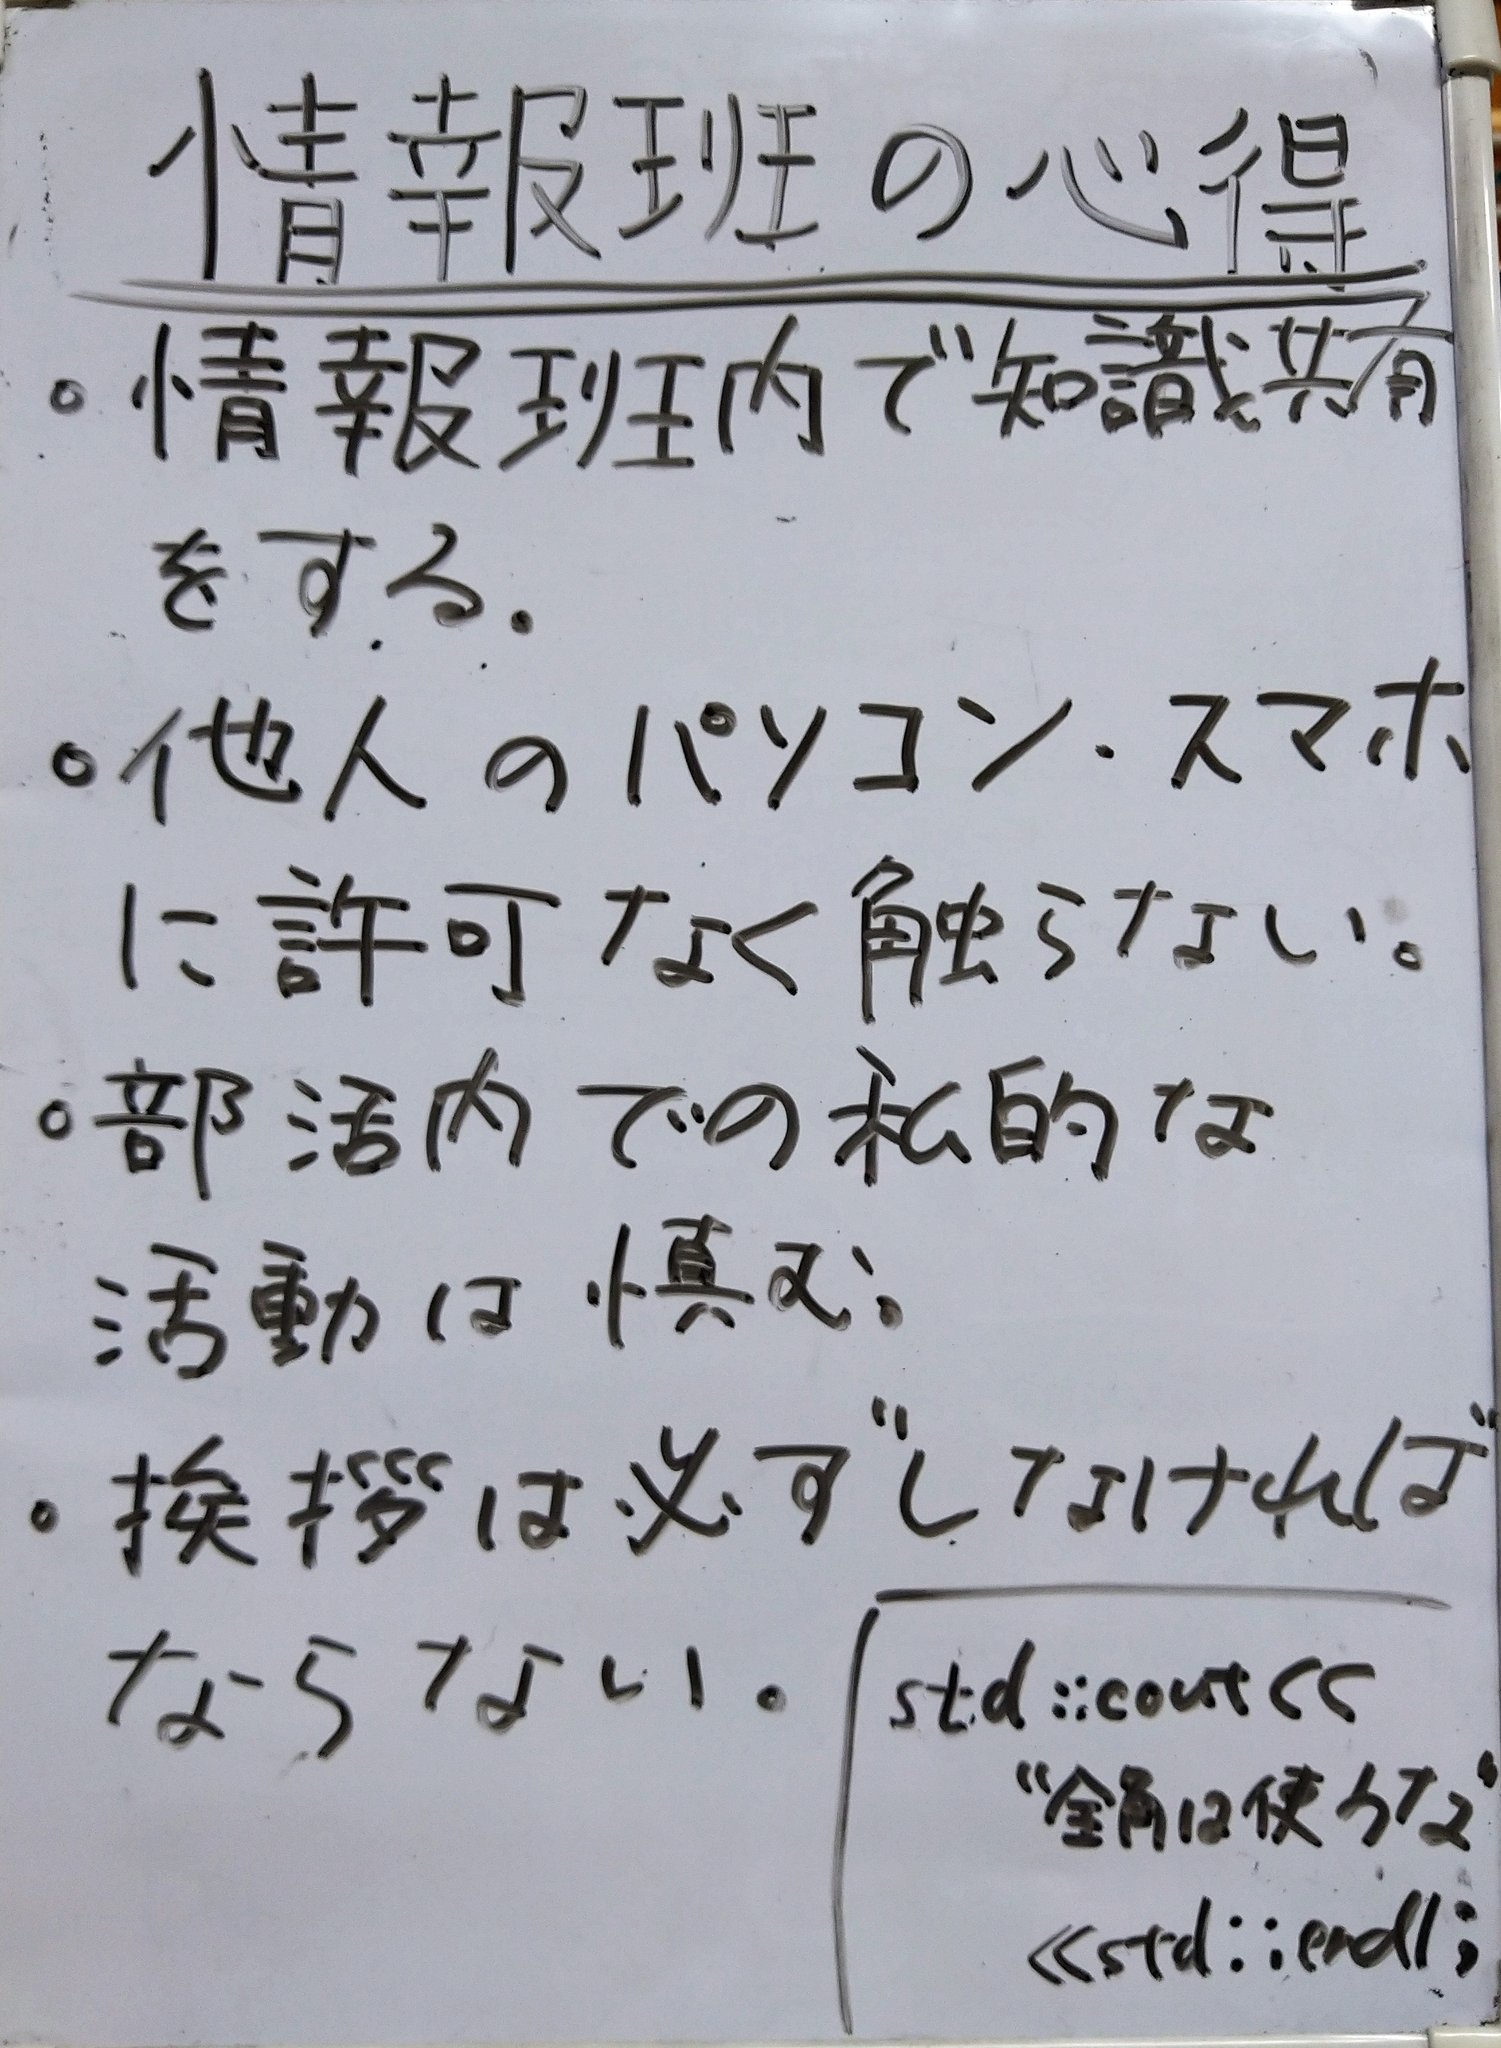 情報班の心得
・情報班内で知識共有
をする.
・他人のパソコン・スマホ
に許可なく触らない。
・部活内での私的な
活動は慎む。
・挨拶は必ずしなければ
ならない。
std::cout<<
"全角は使うな"
<<std::endl;